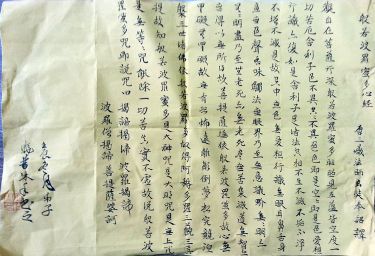 般若波羅蜜多心經
唐三藏法師玄奘奉詔譯
觀自在菩薩行深般若波羅蜜多時照見五蘊皆空度一
切苦厄舍利子色不異空空不異色色即是空空即是色受想
行識亦復如是舍利子是諸法空相不生不滅不垢不淨
不增不減是故空中無色無受想行識無眼耳鼻舌身
意無色聲香味觸法無眼界乃至無意識界無無明亦
無無明盡乃至無老死亦無老死盡無苦集滅道無智亦
無得以無所得故菩提薩埵依般若波羅蜜多故心無
罣礙無罣礙故無有恐怖遠離顛倒夢想究竟涅
槃三世諸佛依般若波羅蜜多故得阿耨多羅三藐三菩
提故知般若波羅蜜多是大神咒是大明咒是無上咒
是無等等咒能除一切苦真實不虛故說般若波
羅蜜多咒即說咒曰揭諦揭諦波羅揭諦
波羅僧揭諦菩提薩婆訶